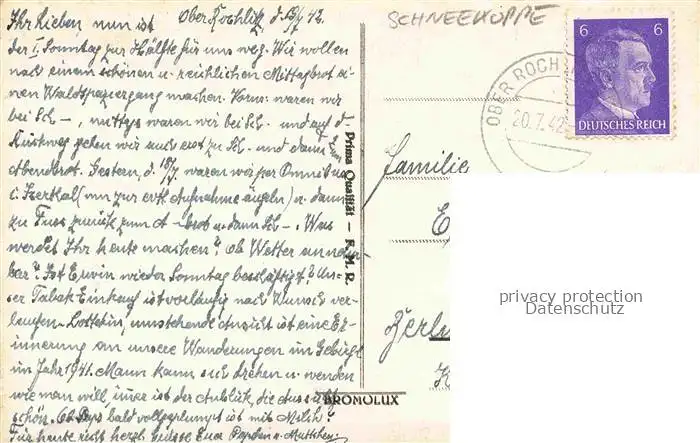 Ober Rochlitz, d. 19/7. 42.
Ihr Lieben, nun ist
der I. Sonntag zur Hälfte für uns weg. Wir wollen
nach einem schönen u. reichlichen Mittagbrot ei-
nen Waldspaziergang machen. Vorm. waren wir
bei Sch-, waren wir bei Sch- und auf d.
Rückweg gehen wir auch erst zu Sch- und dann zum
Abendbrot. Gestern, d. 18/7. waren wir per Omnibus
i. Iserthal (um zur Aufnahme) u. dann
zu Fuss zurück zum A-brot u. dann Sch-. Was
werdet Ihr heute machen? Ob Wetter annehm-
bar? Ist Erwin wieder Sonntag beschäftigt? Un-
ser Tabak-Einkauf ist vorläufig nach Wunsch ver-
laufen. umstehende Ansicht ist eine Er-
innerung an unsere Wanderungen im Gebirge
im Jahr 1941. Mann kann sich drehen u. wenden
wie man will, immer ist der Anblick, die Aussicht
schön. Ob Paps bald ist mit Milch?
Für heute recht herzl. Grüsse Euer Papchen u. Muttchen
SCHNEEKOPPE
6 6
DEUTSCHES REICH
OBER ROCH
20.7.42
Prima Qualität – R. M. R.
BROMOLUX
Familie
E
Berlin
privacy protection
Datenschutz